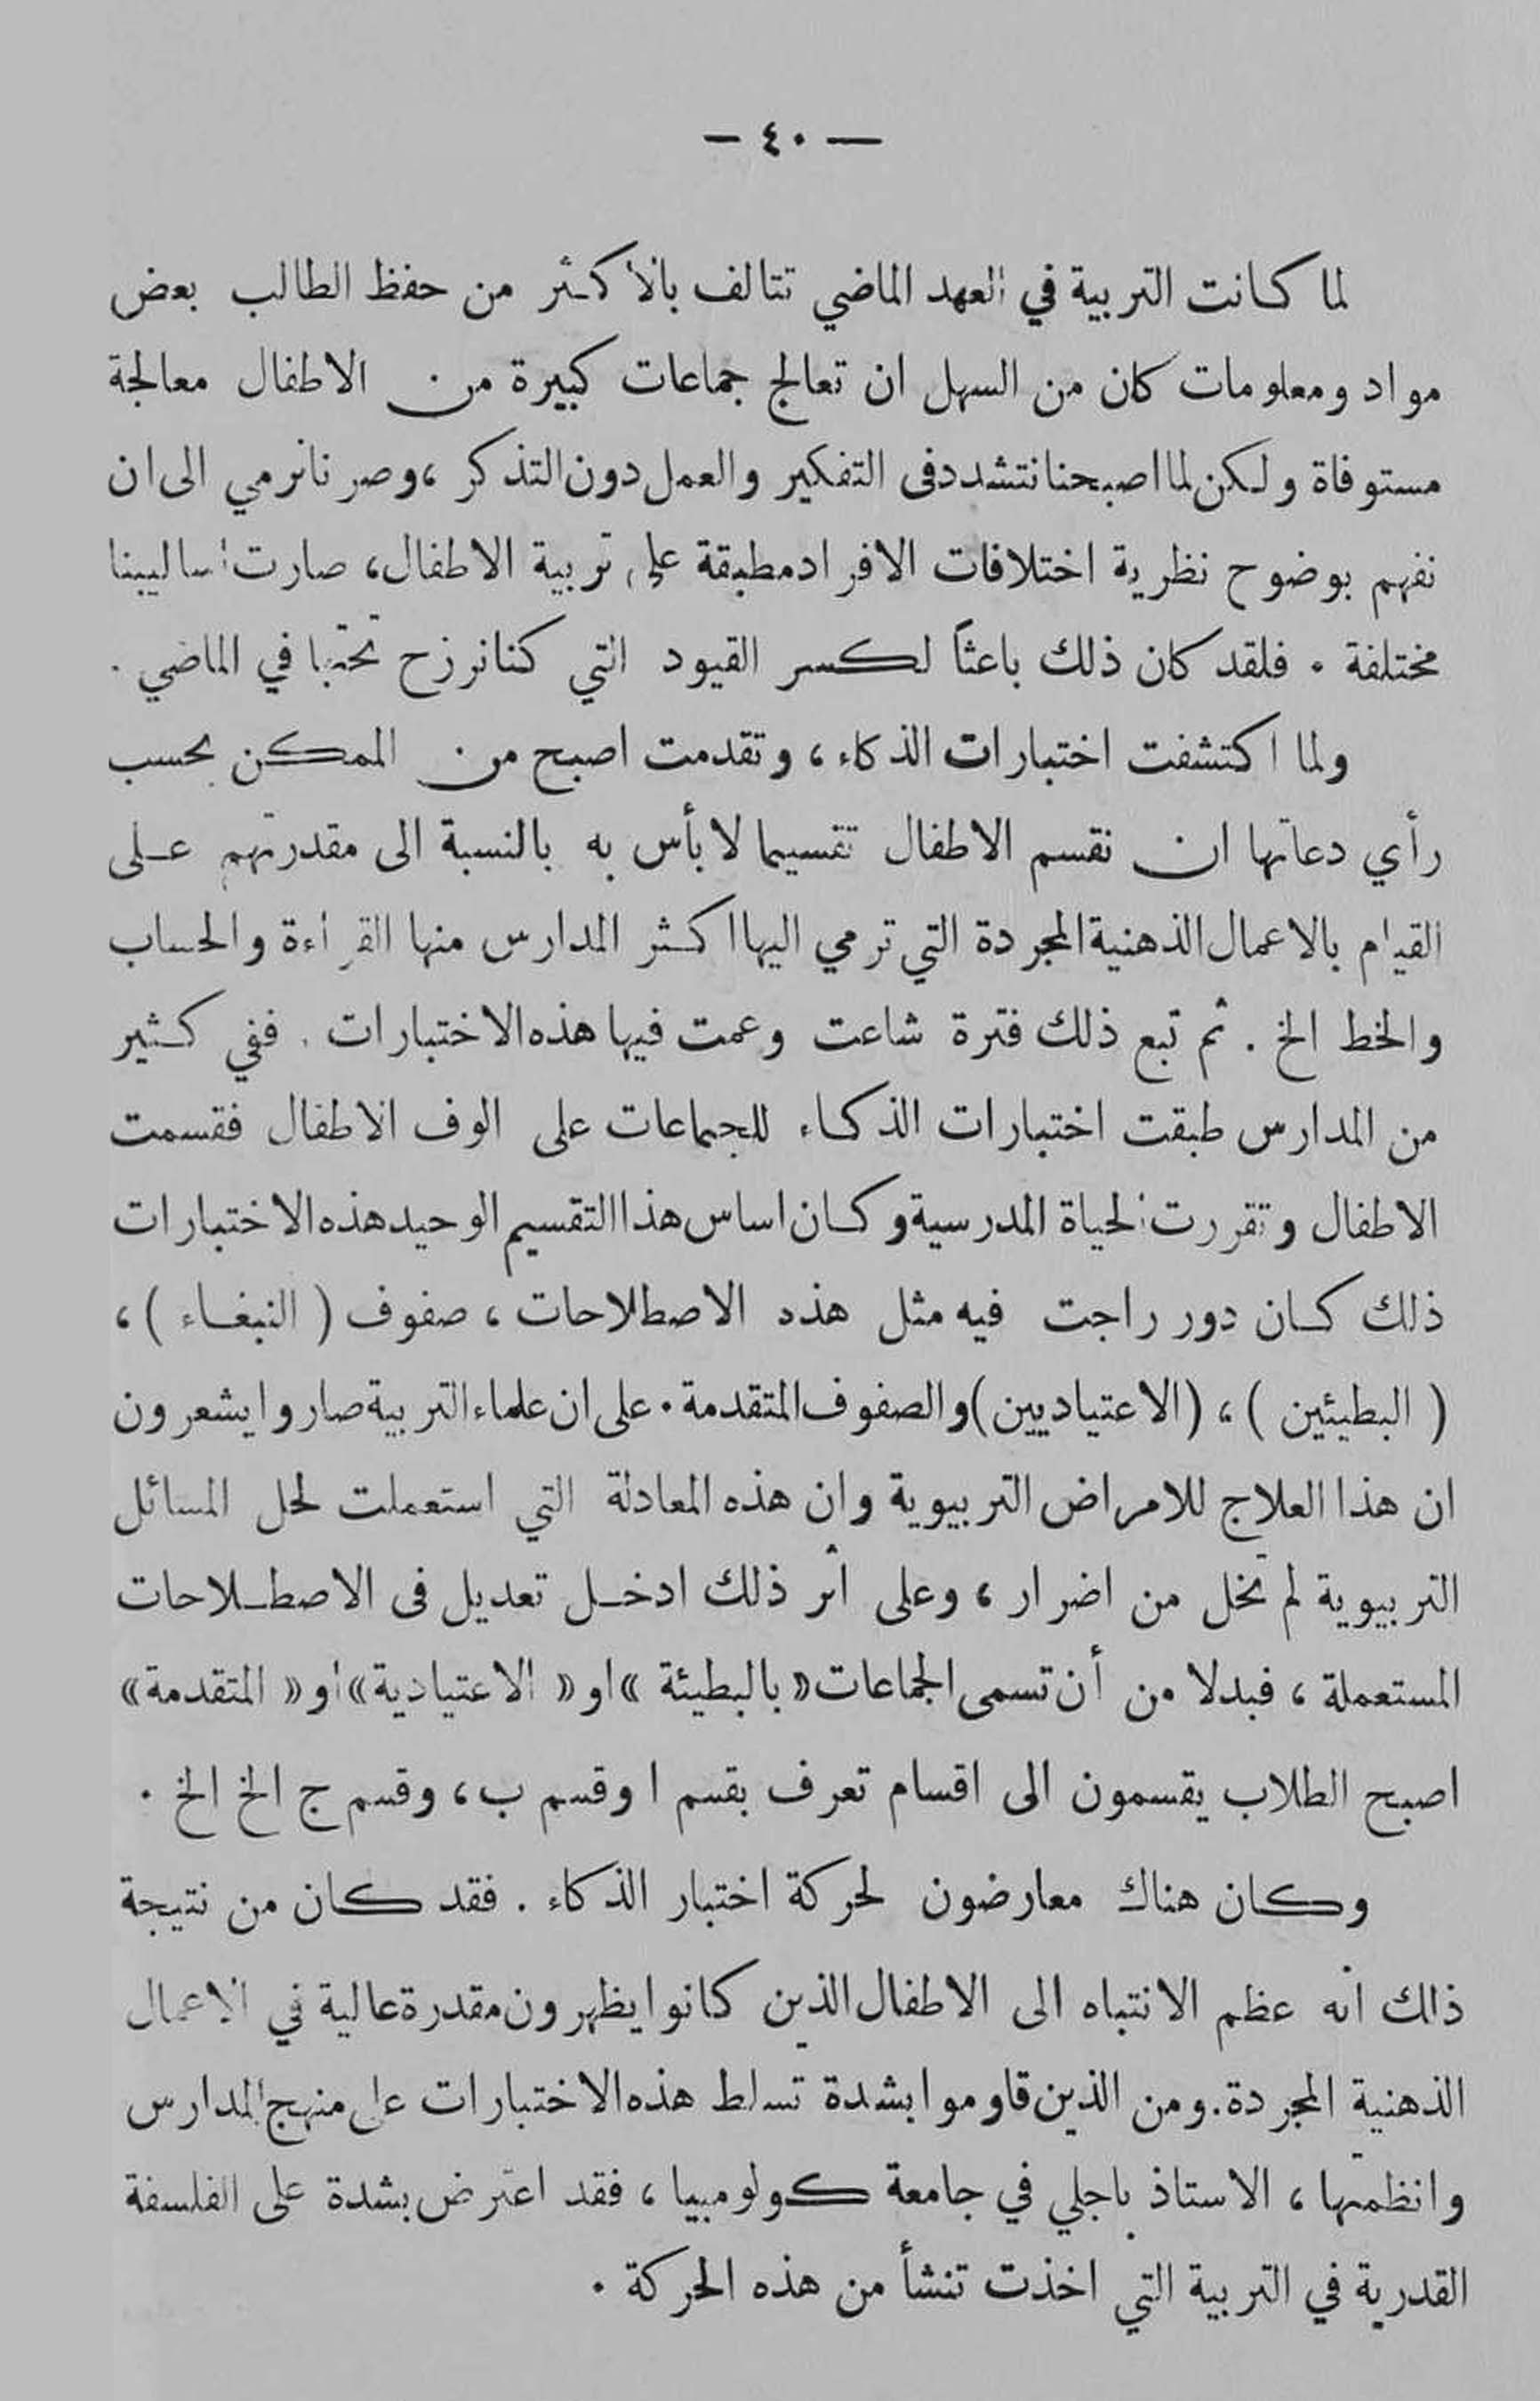 — ٤٠ —
لما كانت التربية في العهد الماضي تتالف بالاكثر من حفظ الطالب بعض
مواد ومعلومات كان من السهل ان تعالج جماعات كبيرة من الاطفال معالجة
مستوفاة ولكن لما اصبحنا نتشدد فى التفكير والعمل دون التذكر ، وصرنا نرمي الى ان
نفهم بوضوح نظرية اختلافات الافراد مطبقة على تربية الاطفال، صارت اساليبنا
مختلفة . فلقد كان ذلك باعثاً لكسر القيود التي كنا نرزح تحتها في الماضي .
ولما اكتشفت اختبارات الذكاء ، وتقدمت اصبح من الممكن بحسب
رأي دعاتها ان نقسم الاطفال تقسيما لا بأس به بالنسبة الى مقدرتهم على
القيام بالاعمال الذهنية المجردة التي ترمي اليها اكثر المدارس منها القراءة والحساب
والخط الخ . ثم تبع ذلك فترة شاعت وعمت فيها هذه الاختبارات . ففي كثير
من المدارس طبقت اختبارات الذكاء للجماعات على الوف الاطفال فقسمت
الاطفال وتقررت الحياة المدرسية وكان اساس هذا التقسيم الوحيد هذه الاختبارات
ذلك كان دور راجت فيه مثل هذه الاصطلاحات ، صفوف ( النبغاء ) ،
( البطيئين ) ، (الاعتياديين) والصفوف المتقدمة . على ان علماء التربية صاروا يشعرون
ان هذا العلاج للامراض التربيوية وان هذه المعادلة التي استعملت لحل المسائل
التربيوية لم تخل من اضرار ، وعلى اثر ذلك ادخل تعديل فى الاصطلاحات
المستعملة ، فبدلا من أن تسمى الجماعات « بالبطيئة » او « الاعتيادية » او « المتقدمة »
اصبح الطلاب يقسمون الى اقسام تعرف بقسم ا وقسم ب ، وقسم ج الخ الخ .
وكان هناك معارضون لحركة اختبار الذكاء . فقد كان من نتيجة
ذلك انه عظم الانتباه الى الاطفال الذين كانوا يظهرون مقدرة عالية في الاعمال
الذهنية المجردة . ومن الذين قاوموا بشدة تسلط هذه الاختبارات على منهج المدارس
وانظمتها ، الاستاذ باجلي في جامعة كولومبيا ، فقد اعترض بشدة على الفلسفة
القدرية في التربية التي اخذت تنشأ من هذه الحركة .